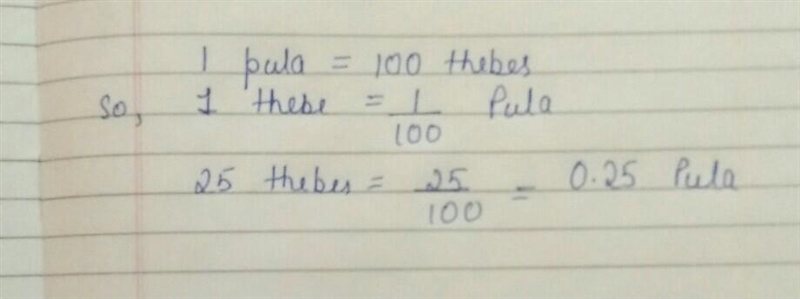 1 pula = 100 thebes
So, 1 thebe = 1/100 Pula
25 thebes = 25/100 = 0.25 Pula